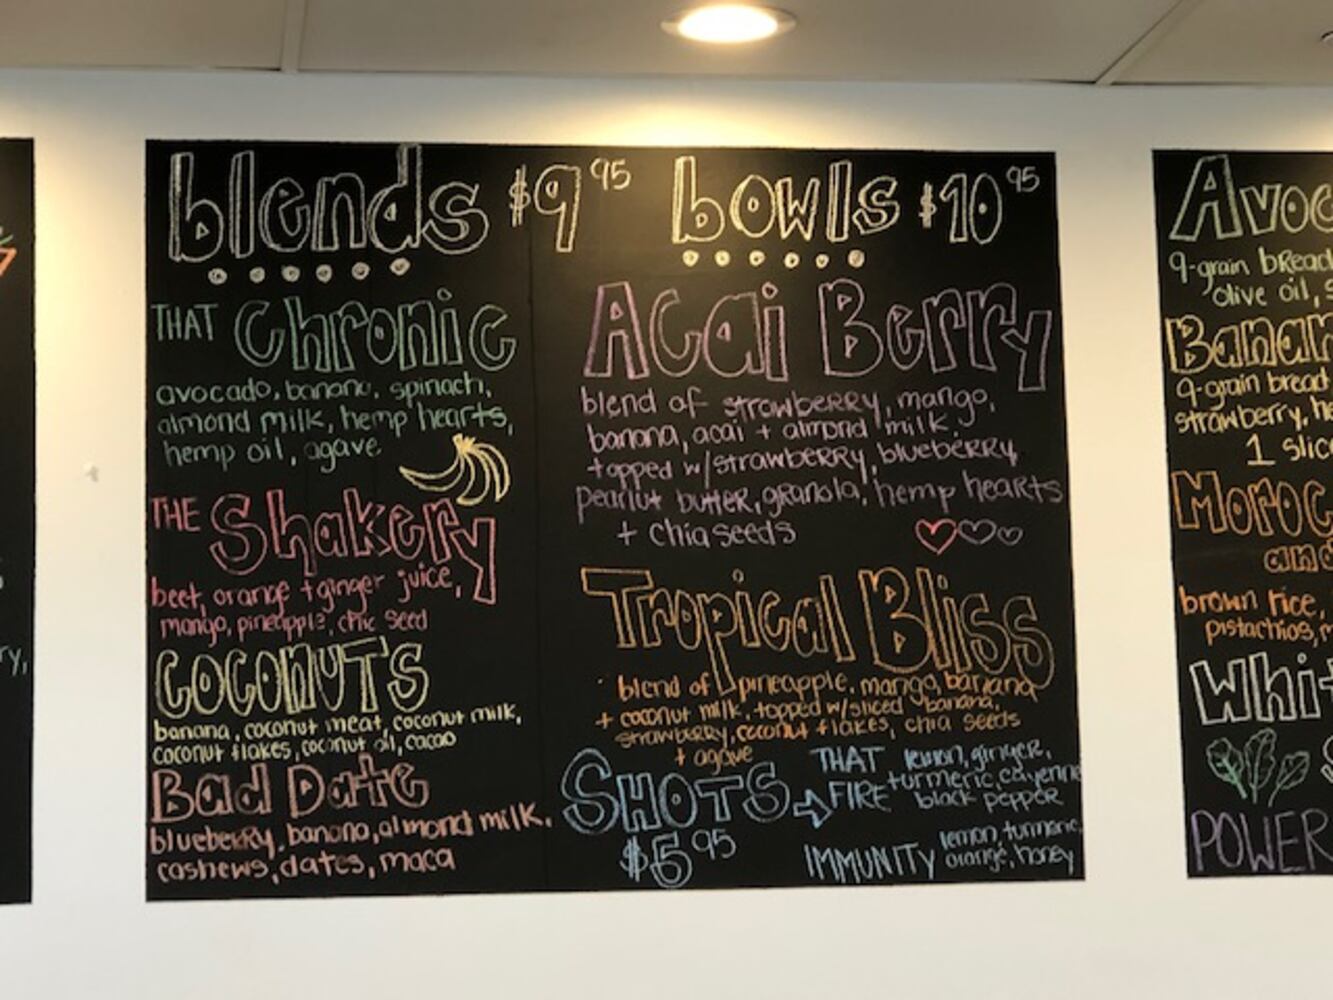 blends $9.95
THAT Chronic
avocado, banana, spinach,
almond milk, hemp hearts,
hemp oil, agave
THE Shakery
beet, orange + ginger juice,
mango, pineapple, chia seed
COCONUTS
banana, coconut meat, coconut milk,
coconut flakes, coconut oil, cacao
Bad Date
blueberry, banana, almond milk,
cashews, dates, maca
bowls $10.95
Acai Berry
blend of strawberry, mango,
banana, acai + almond milk,
topped w/strawberry, blueberry,
peanut butter, granola, hemp hearts
+ chia seeds
Tropical Bliss
blend of pineapple, mango, banana
+ coconut milk, topped w/sliced banana,
strawberry, coconut flakes, chia seeds
+ agave
SHOTS
$5.95
THAT FIRE
lemon, ginger,
turmeric, cayenne
black pepper
IMMUNITY
lemon, turmeric,
orange, honey
9-grain bread
olive oil,
9-grain bread
strawberry,
1
and
brown rice,
pistachios,
POWER